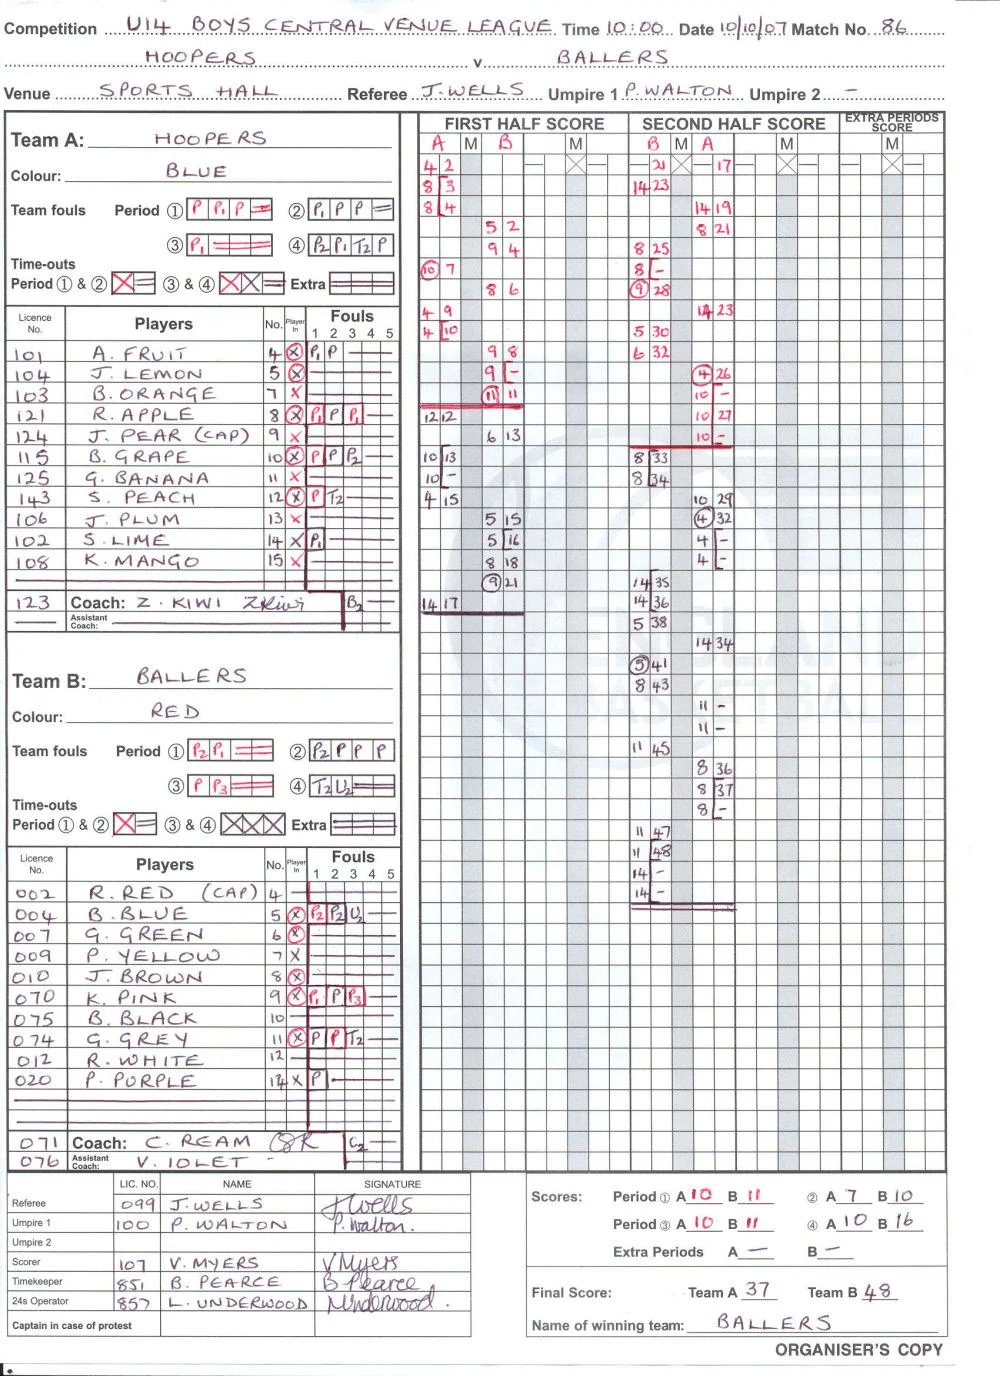 Competition U14 BOYS CENTRAL VENUE LEAGUE Time 10:00 Date 10/10/07 Match No. 86
HOOPERS v BALLERS
Venue SPORTS HALL Referee J.WELLS Umpire 1 P.WALTON Umpire 2 -
Team A: HOOPERS
Colour: BLUE
Team fouls Period ① P P1 P ② P1 P P
③ P1 ④ P2 P1 T2 P
Time-outs
Period ① & ② X ③ & ④ X X Extra
Licence No. Players No. Player In Fouls 1 2 3 4 5
101 A. FRUIT 4 X P1 P
104 J. LEMON 5 X
103 B. ORANGE 7 X
121 R. APPLE 8 X P1 P P1
124 J. PEAR (CAP) 9 X
115 B. GRAPE 10 X P P P2
125 G. BANANA 11 X
143 S. PEACH 12 X P T2
106 J. PLUM 13 X
102 S. LIME 14 X P1
108 K. MANGO 15 X
123 Coach: Z. KIWI ZKiwi B2
Assistant Coach:
Team B: BALLERS
Colour: RED
Team fouls Period ① P2 P1 ② P2 P P P
③ P P3 ④ T2 U2
Time-outs
Period ① & ② X ③ & ④ X X X Extra
Licence No. Players No. Player In Fouls 1 2 3 4 5
002 R. RED (CAP) 4
004 B. BLUE 5 X P2 P2 U2
007 G. GREEN 6 X
009 P. YELLOW 7 X
010 J. BROWN 8 X
070 K. PINK 9 X P1 P P3
075 B. BLACK 10
074 G. GREY 11 X P P T2
012 R. WHITE 12
020 P. PURPLE 14 X P
071 Coach: C. REAM C2
076 Assistant Coach: V. IOLET
FIRST HALF SCORE SECOND HALF SCORE EXTRA PERIODS SCORE
A M B M B M A M M
4 2 21 17
8 3 14 23
8 4 14 19
5 2 8 21
9 4 8 25
10 7 8 -
8 6 9 28
4 9 14 23
4 10 5 30
9 8 6 32
9 - 4 26
11 11 10 -
12 12 10 27
6 13 10 -
10 13 8 33
10 - 8 34
4 15 10 29
5 15 4 32
5 16 4 -
8 18 4 -
9 21 14 35
14 17 14 36
5 38
14 34
5 41
8 43
11 -
11 -
11 45
8 36
8 37
8 -
11 47
11 48
14 -
14 -
LIC. NO. NAME SIGNATURE
Referee 099 J. WELLS J Wells
Umpire 1 100 P. WALTON P. Walton.
Umpire 2
Scorer 107 V. MYERS V Myers
Timekeeper 851 B. PEARCE B Pearce
24s Operator 857 L. UNDERWOOD LUnderwood.
Captain in case of protest
Scores: Period ① A 10 B 11 ② A 7 B 10
Period ③ A 10 B 11 ④ A 10 B 16
Extra Periods A - B -
Final Score: Team A 37 Team B 48
Name of winning team: BALLERS
ORGANISER'S COPY